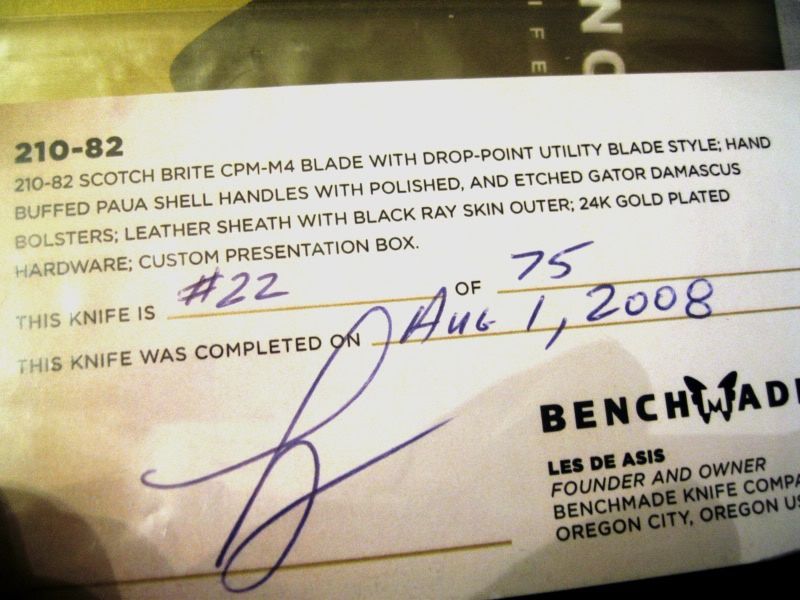 NO
IFE
210-82
210-82 SCOTCH BRITE CPM-M4 BLADE WITH DROP-POINT UTILITY BLADE STYLE; HAND
BUFFED PAUA SHELL HANDLES WITH POLISHED, AND ETCHED GATOR DAMASCUS
BOLSTERS; LEATHER SHEATH WITH BLACK RAY SKIN OUTER; 24K GOLD PLATED
HARDWARE; CUSTOM PRESENTATION BOX.
THIS KNIFE IS #22 OF 75
THIS KNIFE WAS COMPLETED ON Aug 1, 2008
BENCHMADE
LES DE ASIS
FOUNDER AND OWNER
BENCHMADE KNIFE COMPA
OREGON CITY, OREGON US